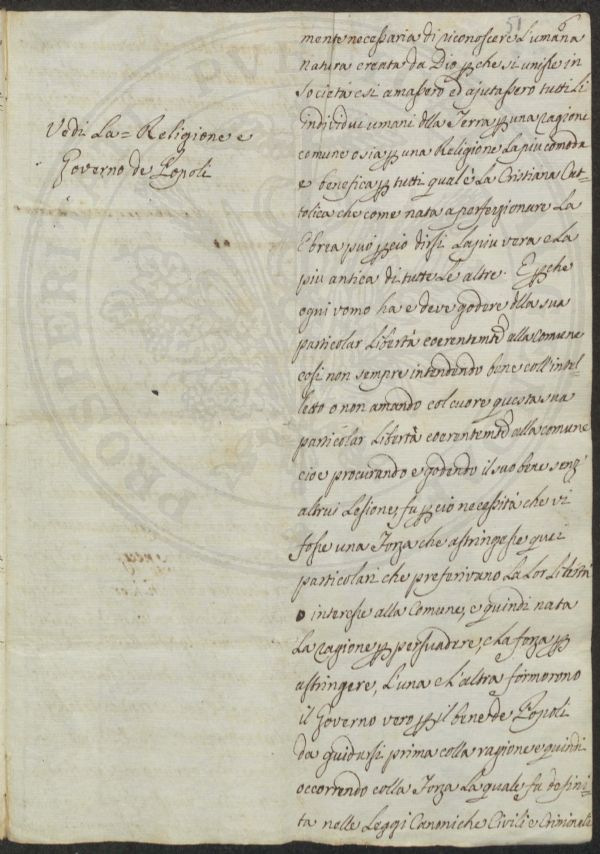 51
Vedi La= Religione e
Governo de Popoli
mente necessaria di riconoscere L'umana
natura creata da Dio pche si unisse in
Societa e si amassero ed ajutassero tutti Li
individui umani dlla Terra p una ragione
comune o sia p una Religione La piu comoda
e benefica p tutti qual è La Cristiana Cat=
tolica che come nata a perfezionare La
Ebrea può p ciò dirsi La piu vera e La
piu antica di tutte Le altre: E pche
ogni vomo ha e deve godere dlla sua
particolar Libertà coerentemte alla comune
così non sempre intendendo bene coll'intel=
letto o non amando col cuore questa sua
particolar Libertà coerentemte alla comune
cioe procurando e godendo il suo bene senz'
altrui Lesione, fu p ciò necessità che vi
fosse una Forza che astringesse quei
particolari che preferivano La Lor Libertà
o interesse alla Comune, e quindi nata
La ragione p persuadere, e La forza p
astringere, L'una e L'altra formorono
il Governo vero p il bene de Popoli
da guidarsi prima colla ragione e quindi
occorrendo colla Forza La quale fu defini=
ta nelle Leggi Canoniche Civili e Criminali